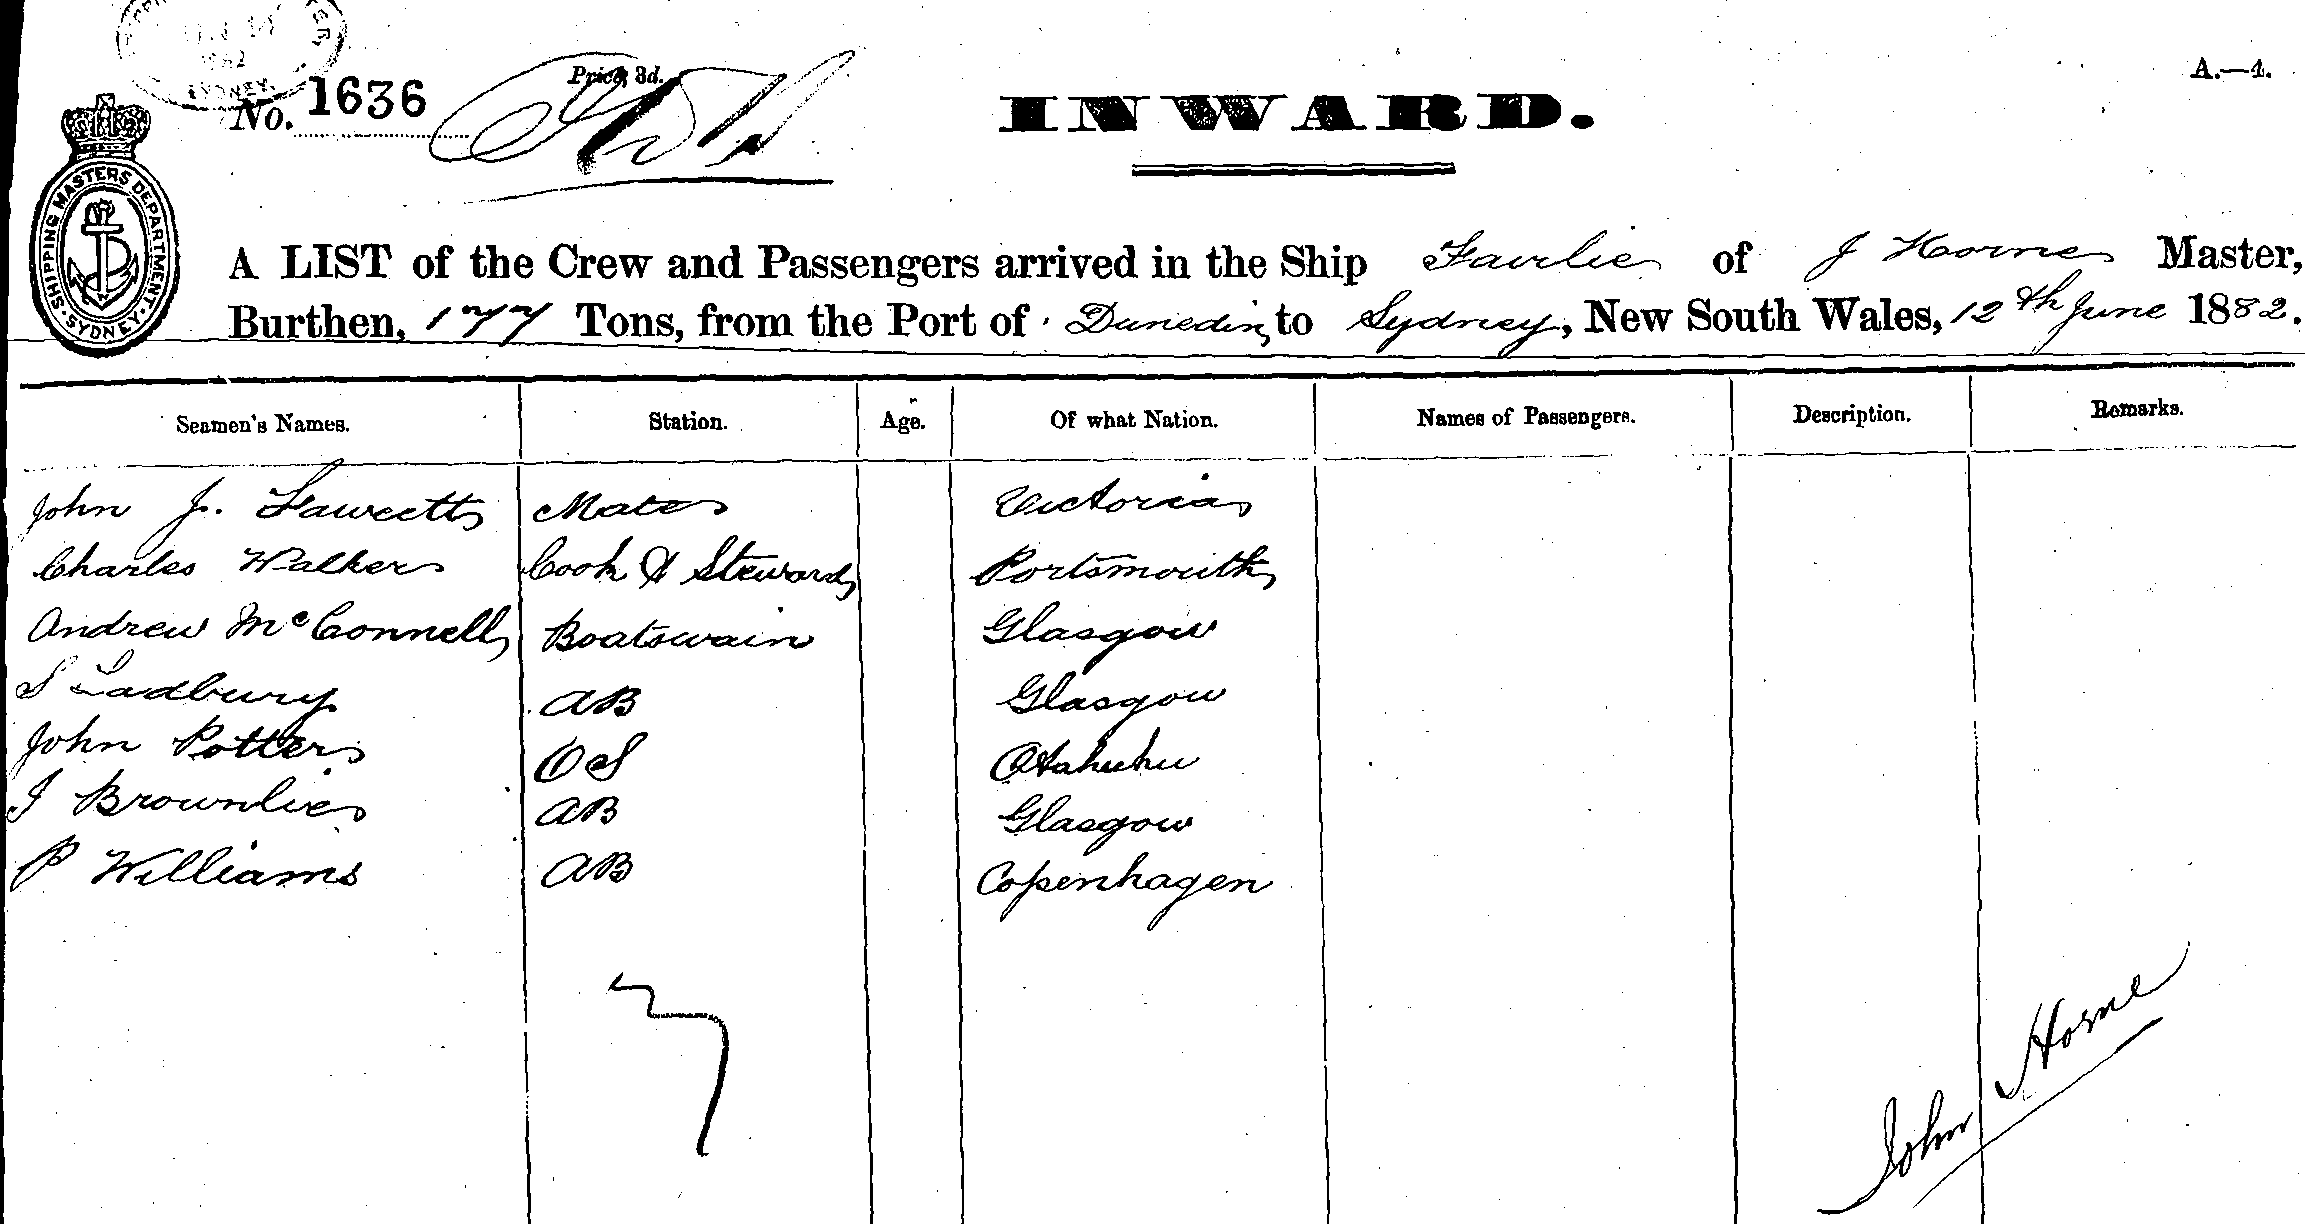 SYDNEY.
No. 1636
Price, 3d.
INWARD.
A.—4.
SHIPPING MASTERS DEPARTMENT. SYDNEY.
A LIST of the Crew and Passengers arrived in the Ship Fairlie of J Horne Master,
Burthen, 177 Tons, from the Port of Dunedin to Sydney, New South Wales, 12th June 1882.
Seamen's Names. Station. Age. Of what Nation. Names of Passengers. Description. Remarks.
John J. Fawcett Mate Victoria
Charles Walker Cook & Steward Portsmouth
Andrew McConnell Boatswain Glasgow
S Ladbury AB Glasgow
John Potter OS Otahuhu
J Brownlie AB Glasgow
P Williams AB Copenhagen
John Horne